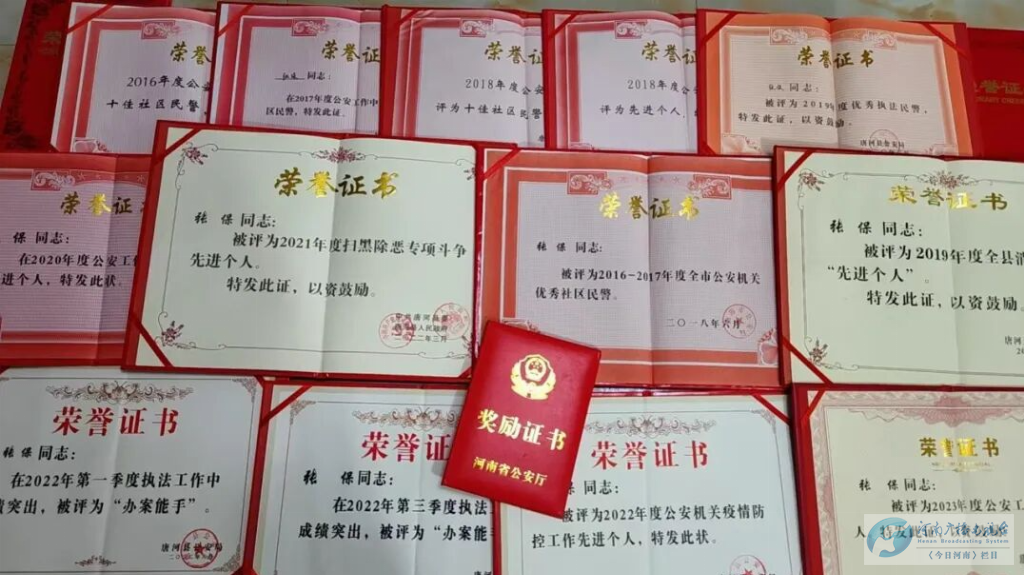 荣誉证
2016年度公安
十佳社区民警
荣誉证
同志:
在2017年度公安工作中
区民警,特发此证。
荣誉证
2018年度公安
评为十佳社区民警
荣誉证
2018年度公安
评为先进个人
荣誉证书
同志:
被评为2019年度优秀执法民警,
特发此证,以资鼓励。
唐河县公安局
荣誉证
保 同志:
在2020年度公安工
进个人,特发此状。
荣誉证书
张 保 同志:
被评为2021年度扫黑除恶专项斗争
先进个人。
特发此证,以资鼓励。
二〇二二年三月
荣誉证书
张 保 同志:
被评为2016-2017年度全市公安机关
优秀社区民警。
二〇一八年六月
荣誉证书
张 保 同志:
被评为2019年度全县消
“先进个人”。
特发此证,以资鼓励
唐河县
荣誉证书
张 保同志:
在2022年第一季度执法工作中
成绩突出,被评为“办案能手”。
唐河县公安局
荣誉证
张 保同志:
在2022年第三季度执法
成绩突出,被评为“办案能手
奖励证书
河南省公安厅
荣誉证书
张 保同志:
被评为2022年度公安机关疫情防
控工作先进个人,特发此状。
荣誉证书
张 保 同志:
被评为2023年度公安工
人,特发此证
河南广播电视台
Henan Broadcasting System
《今日河南》栏目